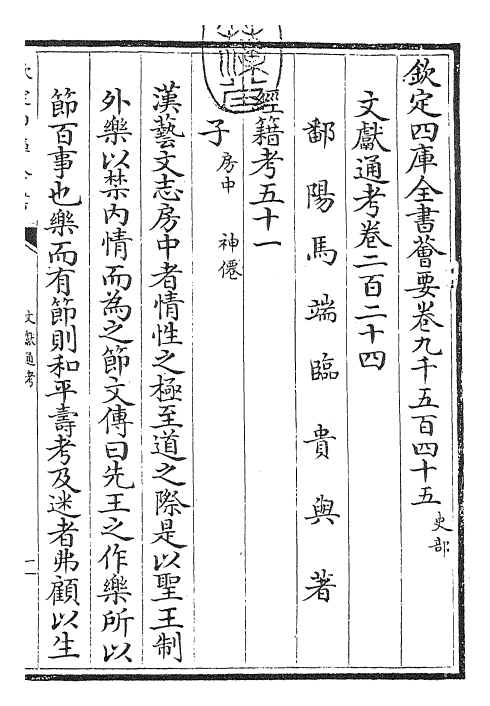 欽定四庫全書薈要卷九千五百四十五 史部
文獻通考卷二百二十四
鄱陽馬端臨貴與著
經籍考五十一
子 房中 神僊
漢藝文志房中者情性之極至道之際是以聖王制
外樂以禁內情而為之節文傳曰先王之作樂所以
節百事也樂而有節則和平壽考及迷者弗顧以生
文獻通考
一